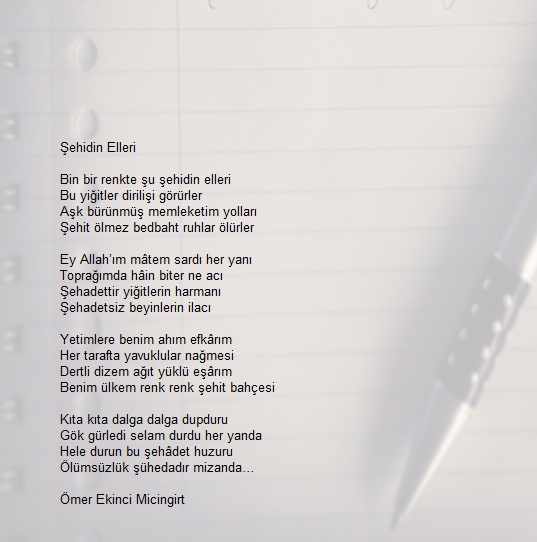 Şehidin Elleri
Bin bir renkte şu şehidin elleri
Bu yiğitler dirilişi görürler
Aşk bürünmüş memleketim yolları
Şehit ölmez bedbaht ruhlar ölürler
Ey Allah'ım mâtem sardı her yanı
Toprağımda hâin biter ne acı
Şehadettir yiğitlerin harmanı
Şehadetsiz beyinlerin ilacı
Yetimlere benim ahım efkârım
Her tarafta yavuklular nağmesi
Dertli dizem ağıt yüklü eşârım
Benim ülkem renk renk şehit bahçesi
Kıta kıta dalga dalga dupduru
Gök gürledi selam durdu her yanda
Hele durun bu şehâdet huzuru
Ölümsüzlük şühedadır mizanda...
Ömer Ekinci Micingirt